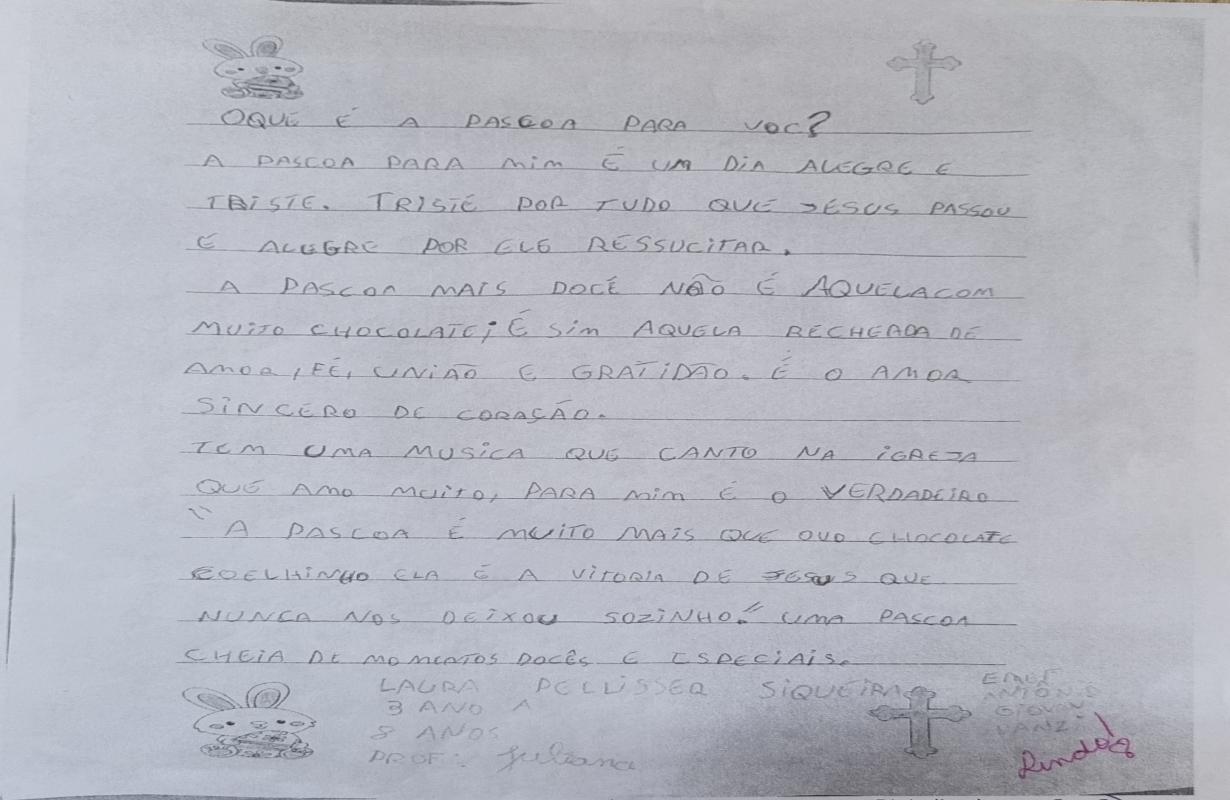 OQUE É A PASCOA PARA VOC?
A PASCOA PARA MIM É UM DIA ALEGRE E
TRISTE. TRISTE POR TUDO QUE JESUS PASSOU
E ALEGRE POR ELE RESSUCITAR.
A PASCOA MAIS DOCÊ NÃO É AQUELA COM
MUITO CHOCOLATE; É SIM AQUELA RECHEADA DE
AMOR, FÉ, UNIÃO E GRATIDÃO. É O AMOR
SINCERO DE CORAÇÃO.
TEM UMA MUSICA QUE CANTO NA IGREJA
QUE AMO MUITO, PARA MIM É O VERDADEIRO
"A PASCOA É MUITO MAIS QUE OVO CHOCOLATE
COELHINHO ELA É A VITORIA DE JESUS QUE
NUNCA NOS DEIXOU SOZINHO." UMA PASCOA
CHEIA DE MOMENTOS DOCÊS E ESPECIAIS.
LAURA PELLISSER SIQUEIRA
3 ANO A
8 ANOS
PROF: Juliana
EMEF
ANTÔNIO
GIOVAN
VANZ